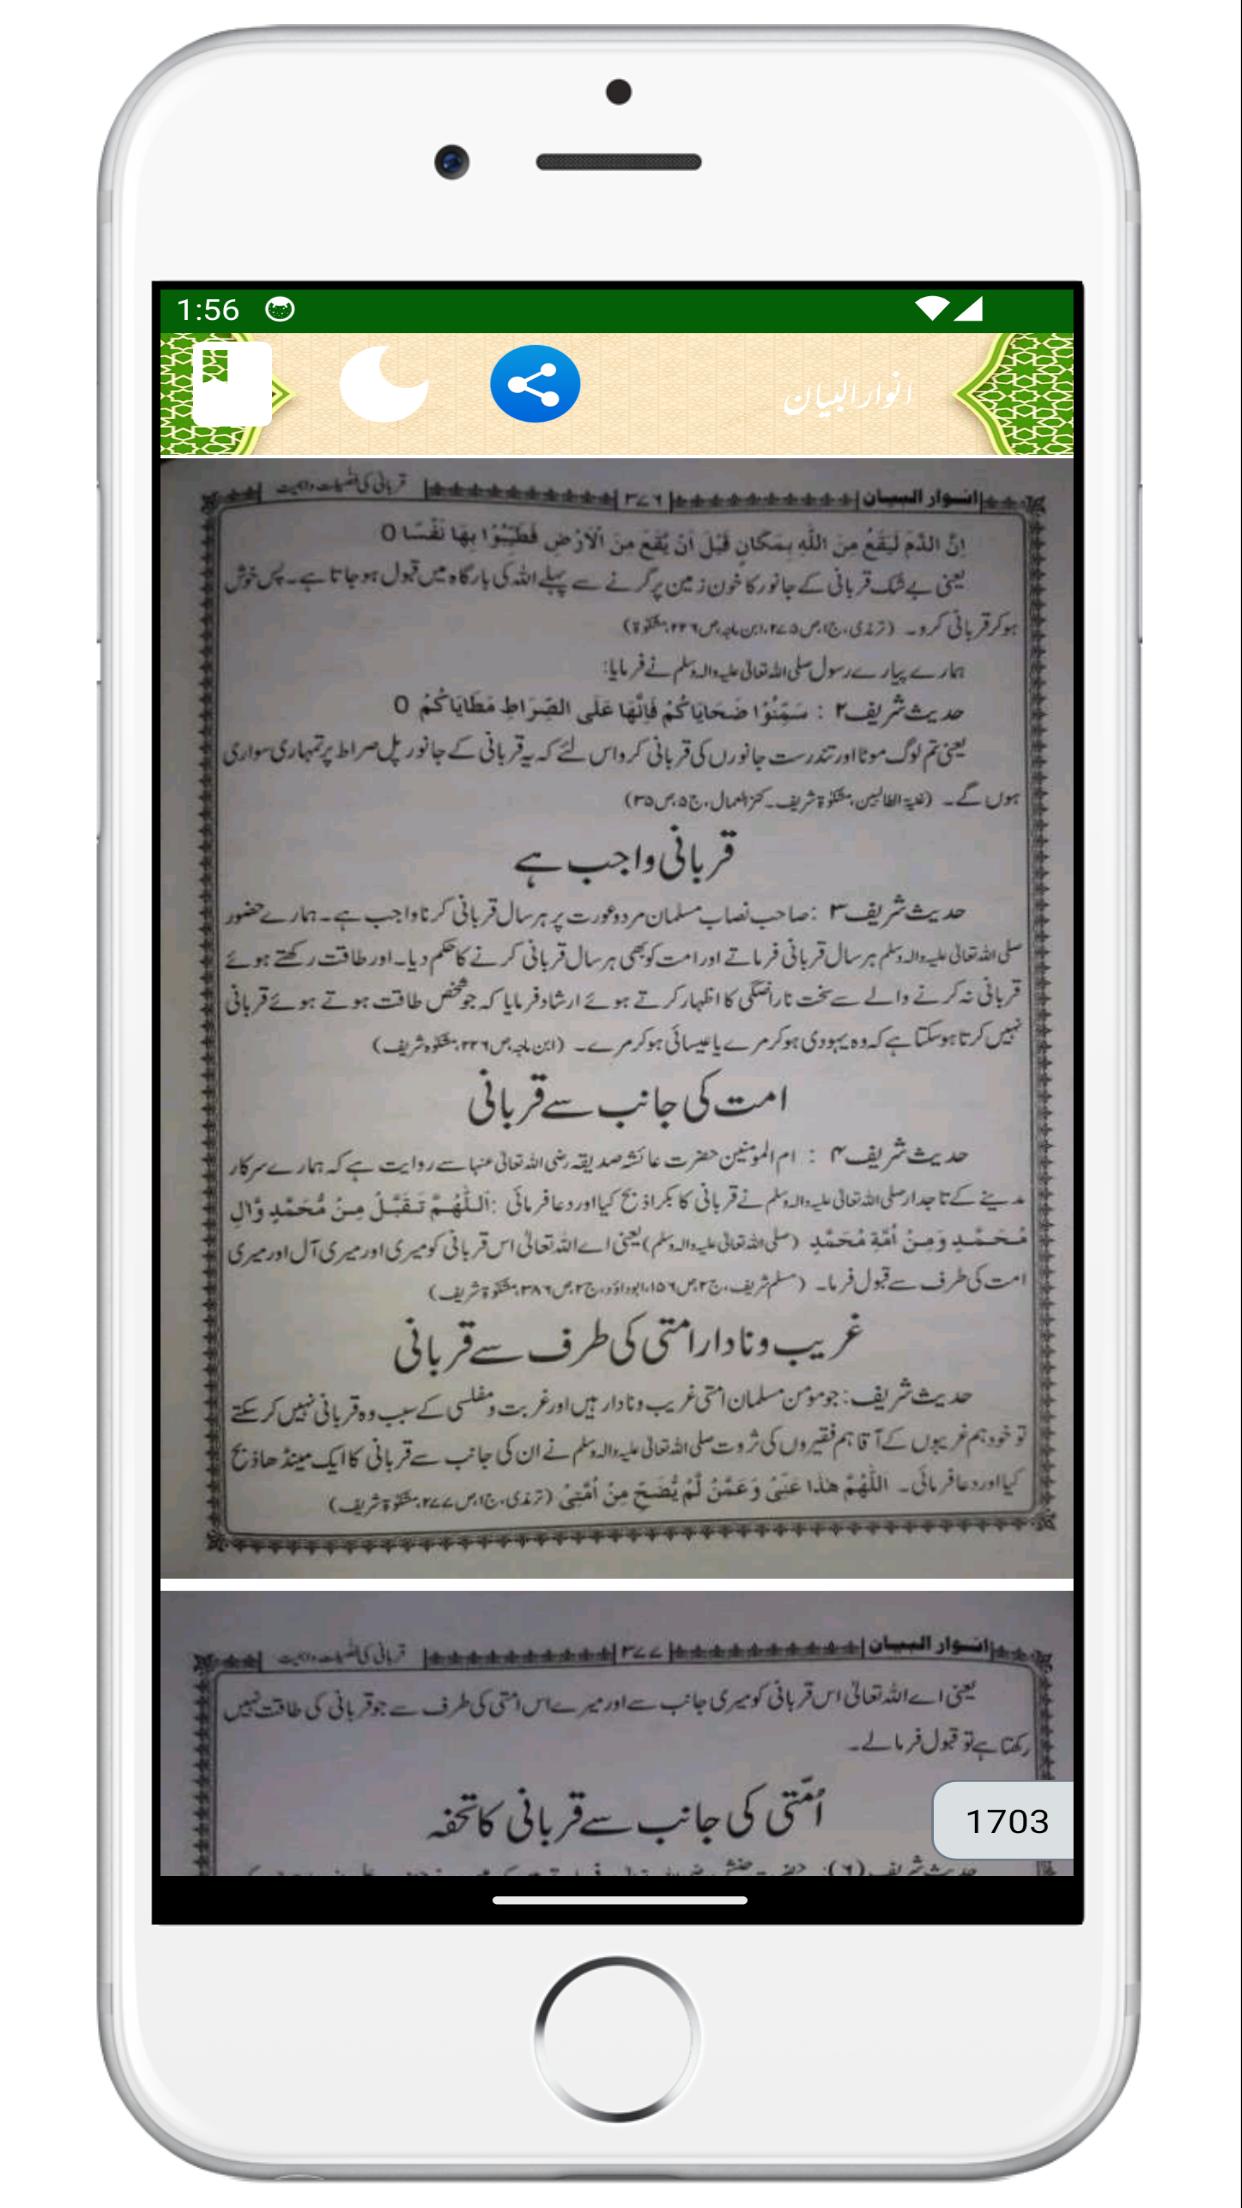 1:56
انوار البیان
انوار البیان ۳۷۶ قربانی کی فضیلت واہمیت
اِنَّ الدَّمَ لَيَقَعُ مِنَ اللّٰهِ بِمَكَانٍ قَبْلَ اَنْ يَّقَعَ مِنَ الْاَرْضِ فَطَيِّبُوْا بِهَا نَفْسًا O
یعنی بے شک قربانی کے جانور کا خون زمین پر گرنے سے پہلے اللہ کی بارگاہ میں قبول ہو جاتا ہے۔ پس خوش
ہو کر قربانی کرو۔ (ترمذی، ج۱، ص۲۷۵، ابن ماجہ، ص۲۲۶، مشکوٰۃ)
ہمارے پیارے رسول صلی اللہ تعالیٰ علیہ والہ وسلم نے فرمایا:
حدیث شریف ۲ : سَمِّنُوْا ضَحَايَاكُمْ فَاِنَّهَا عَلَى الصِّرَاطِ مَطَايَاكُمْ O
یعنی تم لوگ موٹا اور تندرست جانوروں کی قربانی کرو اس لئے کہ یہ قربانی کے جانور پل صراط پر تمہاری سواری
ہوں گے۔ (غنیۃ الطالبین، مشکوٰۃ شریف۔ کنز العمال، ج۵، ص۳۵)
قربانی واجب ہے
حدیث شریف ۳ : صاحب نصاب مسلمان مرد و عورت پر ہر سال قربانی کرنا واجب ہے۔ ہمارے حضور
صلی اللہ تعالیٰ علیہ والہ وسلم ہر سال قربانی فرماتے اور امت کو بھی ہر سال قربانی کرنے کا حکم دیا۔ اور طاقت رکھتے ہوئے
قربانی نہ کرنے والے سے سخت ناراضگی کا اظہار کرتے ہوئے ارشاد فرمایا کہ جو شخص طاقت ہوتے ہوئے قربانی
نہیں کرتا ہو سکتا ہے کہ وہ یہودی ہو کر مرے یا عیسائی ہو کر مرے۔ (ابن ماجہ، ص۲۲۶، مشکوٰۃ شریف)
امت کی جانب سے قربانی
حدیث شریف ۴ : ام المومنین حضرت عائشہ صدیقہ رضی اللہ تعالیٰ عنہا سے روایت ہے کہ ہمارے سرکار
مدینے کے تاجدار صلی اللہ تعالیٰ علیہ والہ وسلم نے قربانی کا بکرا ذبح کیا اور دعا فرمائی : اَللّٰهُمَّ تَقَبَّلْ مِنْ مُّحَمَّدٍ وَّاٰلِ
مُحَمَّدٍ وَمِنْ اُمَّةِ مُحَمَّدٍ (صلی اللہ تعالیٰ علیہ والہ وسلم) یعنی اے اللہ تعالیٰ اس قربانی کو میری اور میری آل اور میری
امت کی طرف سے قبول فرما۔ (مسلم شریف، ج۲، ص۱۵۶، ابوداؤد، ج۲، ص۳۸۶، مشکوٰۃ شریف)
غریب و نادار امتی کی طرف سے قربانی
حدیث شریف : جو مومن مسلمان امتی غریب و نادار ہیں اور غربت و مفلسی کے سبب وہ قربانی نہیں کر سکتے
تو خود ہم غریبوں کے آقا ہم فقیروں کی ثروت صلی اللہ تعالیٰ علیہ والہ وسلم نے ان کی جانب سے قربانی کا ایک مینڈھا ذبح
کیا اور دعا فرمائی۔ اَللّٰهُمَّ هٰذَا عَنِّیْ وَعَمَّنْ لَّمْ يُضَحِّ مِنْ اُمَّتِیْ (ترمذی، ج۱، ص۲۷۷، مشکوٰۃ شریف)
انوار البیان ۳۷۷ قربانی کی فضیلت واہمیت
یعنی اے اللہ تعالیٰ اس قربانی کو میری جانب سے اور میرے اس امتی کی طرف سے جو قربانی کی طاقت نہیں
رکھتا ہے تو قبول فرمالے۔
اُمّتی کی جانب سے قربانی کا تحفہ
1703
حدیث شریف (۶):